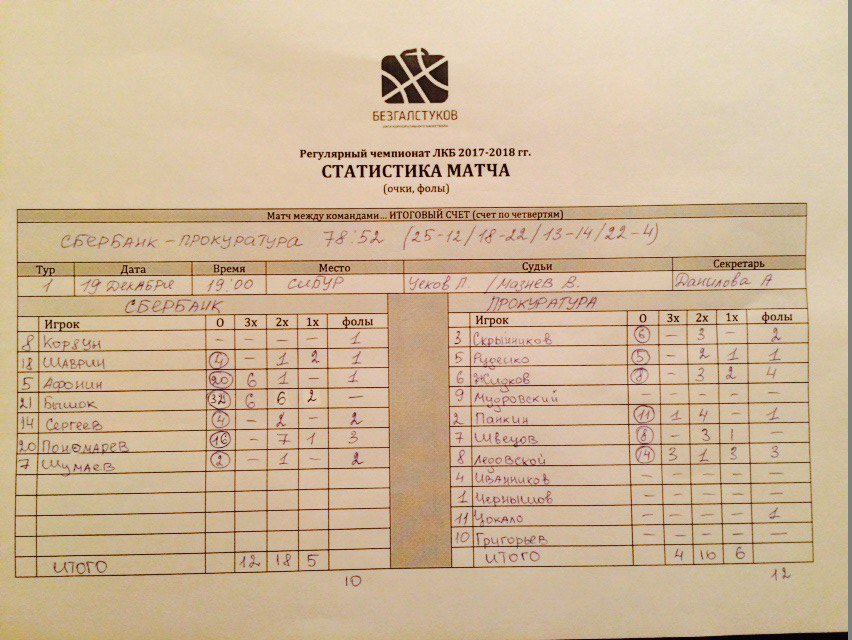 БЕЗГАЛСТУКОВ
Регулярный чемпионат ЛКБ 2017-2018 гг.
СТАТИСТИКА МАТЧА
(очки, фолы)
Матч между командами... ИТОГОВЫЙ СЧЕТ (счет по четвертям)
СБЕРБАНК - ПРОКУРАТУРА 78:52 (25-12/18-22/13-14/22-4)
Тур Дата Время Место Судьи Секретарь
1 19 ДЕКАБРЯ 19:00 СИБУР Чехов Л. /Мазнев В. Данилова А
СБЕРБАНК ПРОКУРАТУРА
Игрок О 3х 2х 1х фолы Игрок О 3х 2х 1х фолы
8 КОРЯУН - - - - 1 3 Скрынников 6 - 3 - 2
18 ШАВРИН 4 - 1 2 1 5 Руденко 5 - 2 1 1
5 АФОНИН 20 6 1 - 1 6 Жидков 8 - 3 2 4
21 БЫШОК 32 6 6 2 - 9 Мудровский - - - - -
14 СЕРГЕЕВ 4 - 2 - 2 2 Панкин 11 1 4 - 1
20 ПОНОМАРЕВ - 7 1 3 7 Швецов 8 - 3 1 -
7 ШУМАЕВ 2 - 1 - 2 8 Ледовской 14 3 1 3 3
4 Иванников - - - - -
1 Чернышов - - - - -
11 Цокало - - - - 1
10 Григорьев - - - - -
ИТОГО 12 18 5 ИТОГО 4 16 6
10 12